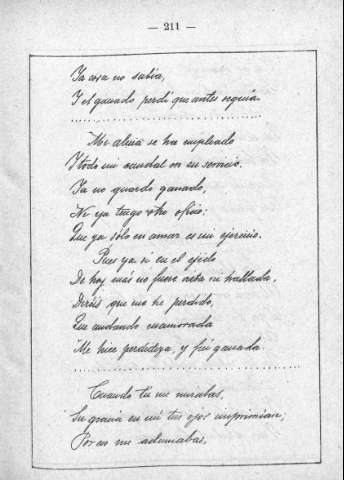 — 211 —
Ya cosa no sabía,
Y el ganado perdí que antes seguía.
Mi alma se ha empleado
Y todo mi caudal en su servicio.
Ya no guardo ganado,
Ni ya tengo otro oficio:
Que ya sólo en amar es mi ejercicio.
Pues ya si en el ejido
De hoy más no fuere vista ni hallada,
Diréis que me he perdido,
Que andando enamorada
Me hice perdidiza, y fuí ganada
Cuando tú me mirabas,
Su gracia en mí tus ojos imprimían;
Por eso me adamabas,